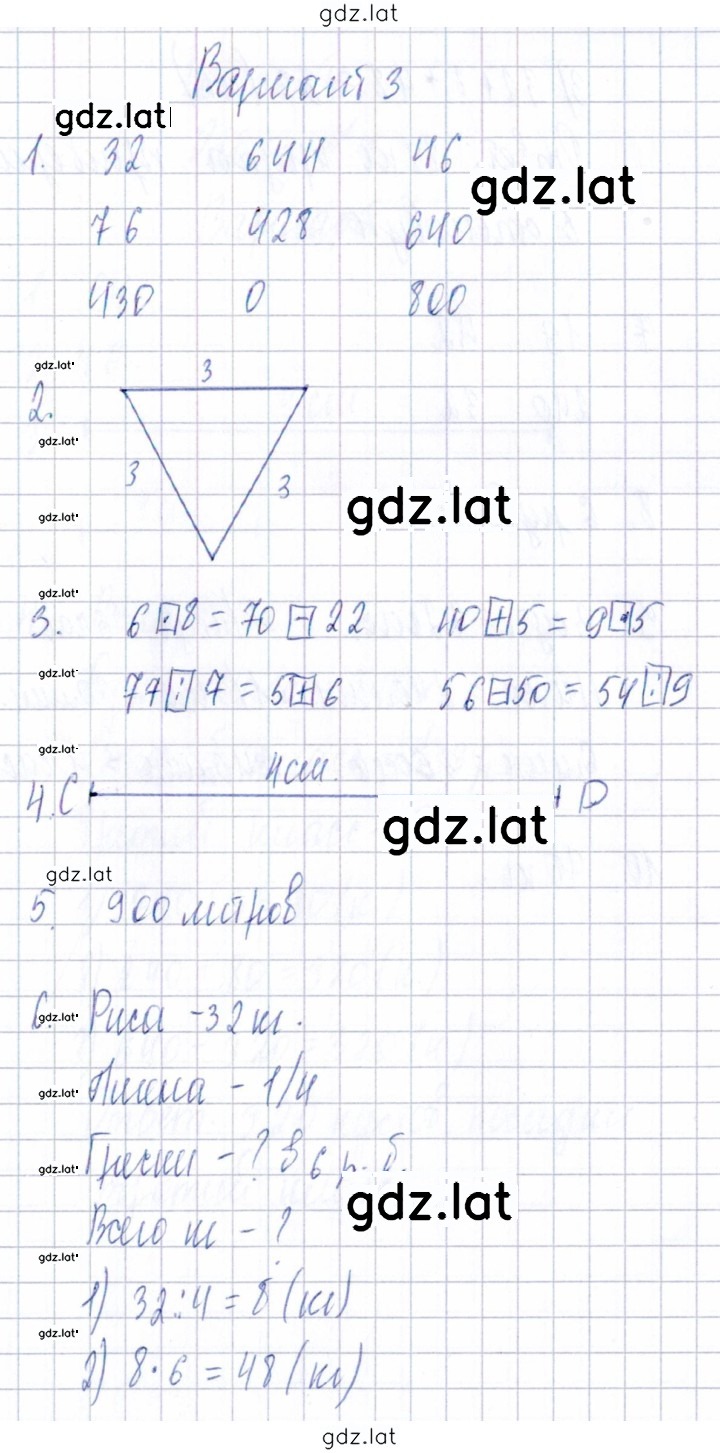 gdz.lat
Вариант 3
gdz.lat
1. 32 644 46
gdz.lat
76 428 640
430 0 800
gdz.lat
3
2.
gdz.lat
3 3
gdz.lat
gdz.lat
gdz.lat
3. 6 · 8 = 70 - 22 40 + 5 = 9 · 5
gdz.lat
77 : 7 = 5 + 6 56 - 50 = 54 : 9
gdz.lat
4 см.
4. C D
gdz.lat
gdz.lat
5. 900 метров
6. Риса - 32 кг.
gdz.lat
Пшена - 1/4
gdz.lat
Гречки - ? в 6 р. б.
gdz.lat
gdz.lat
Всего кг - ?
gdz.lat
1) 32 : 4 = 8 (кг)
gdz.lat
2) 8 · 6 = 48 (кг)
gdz.lat